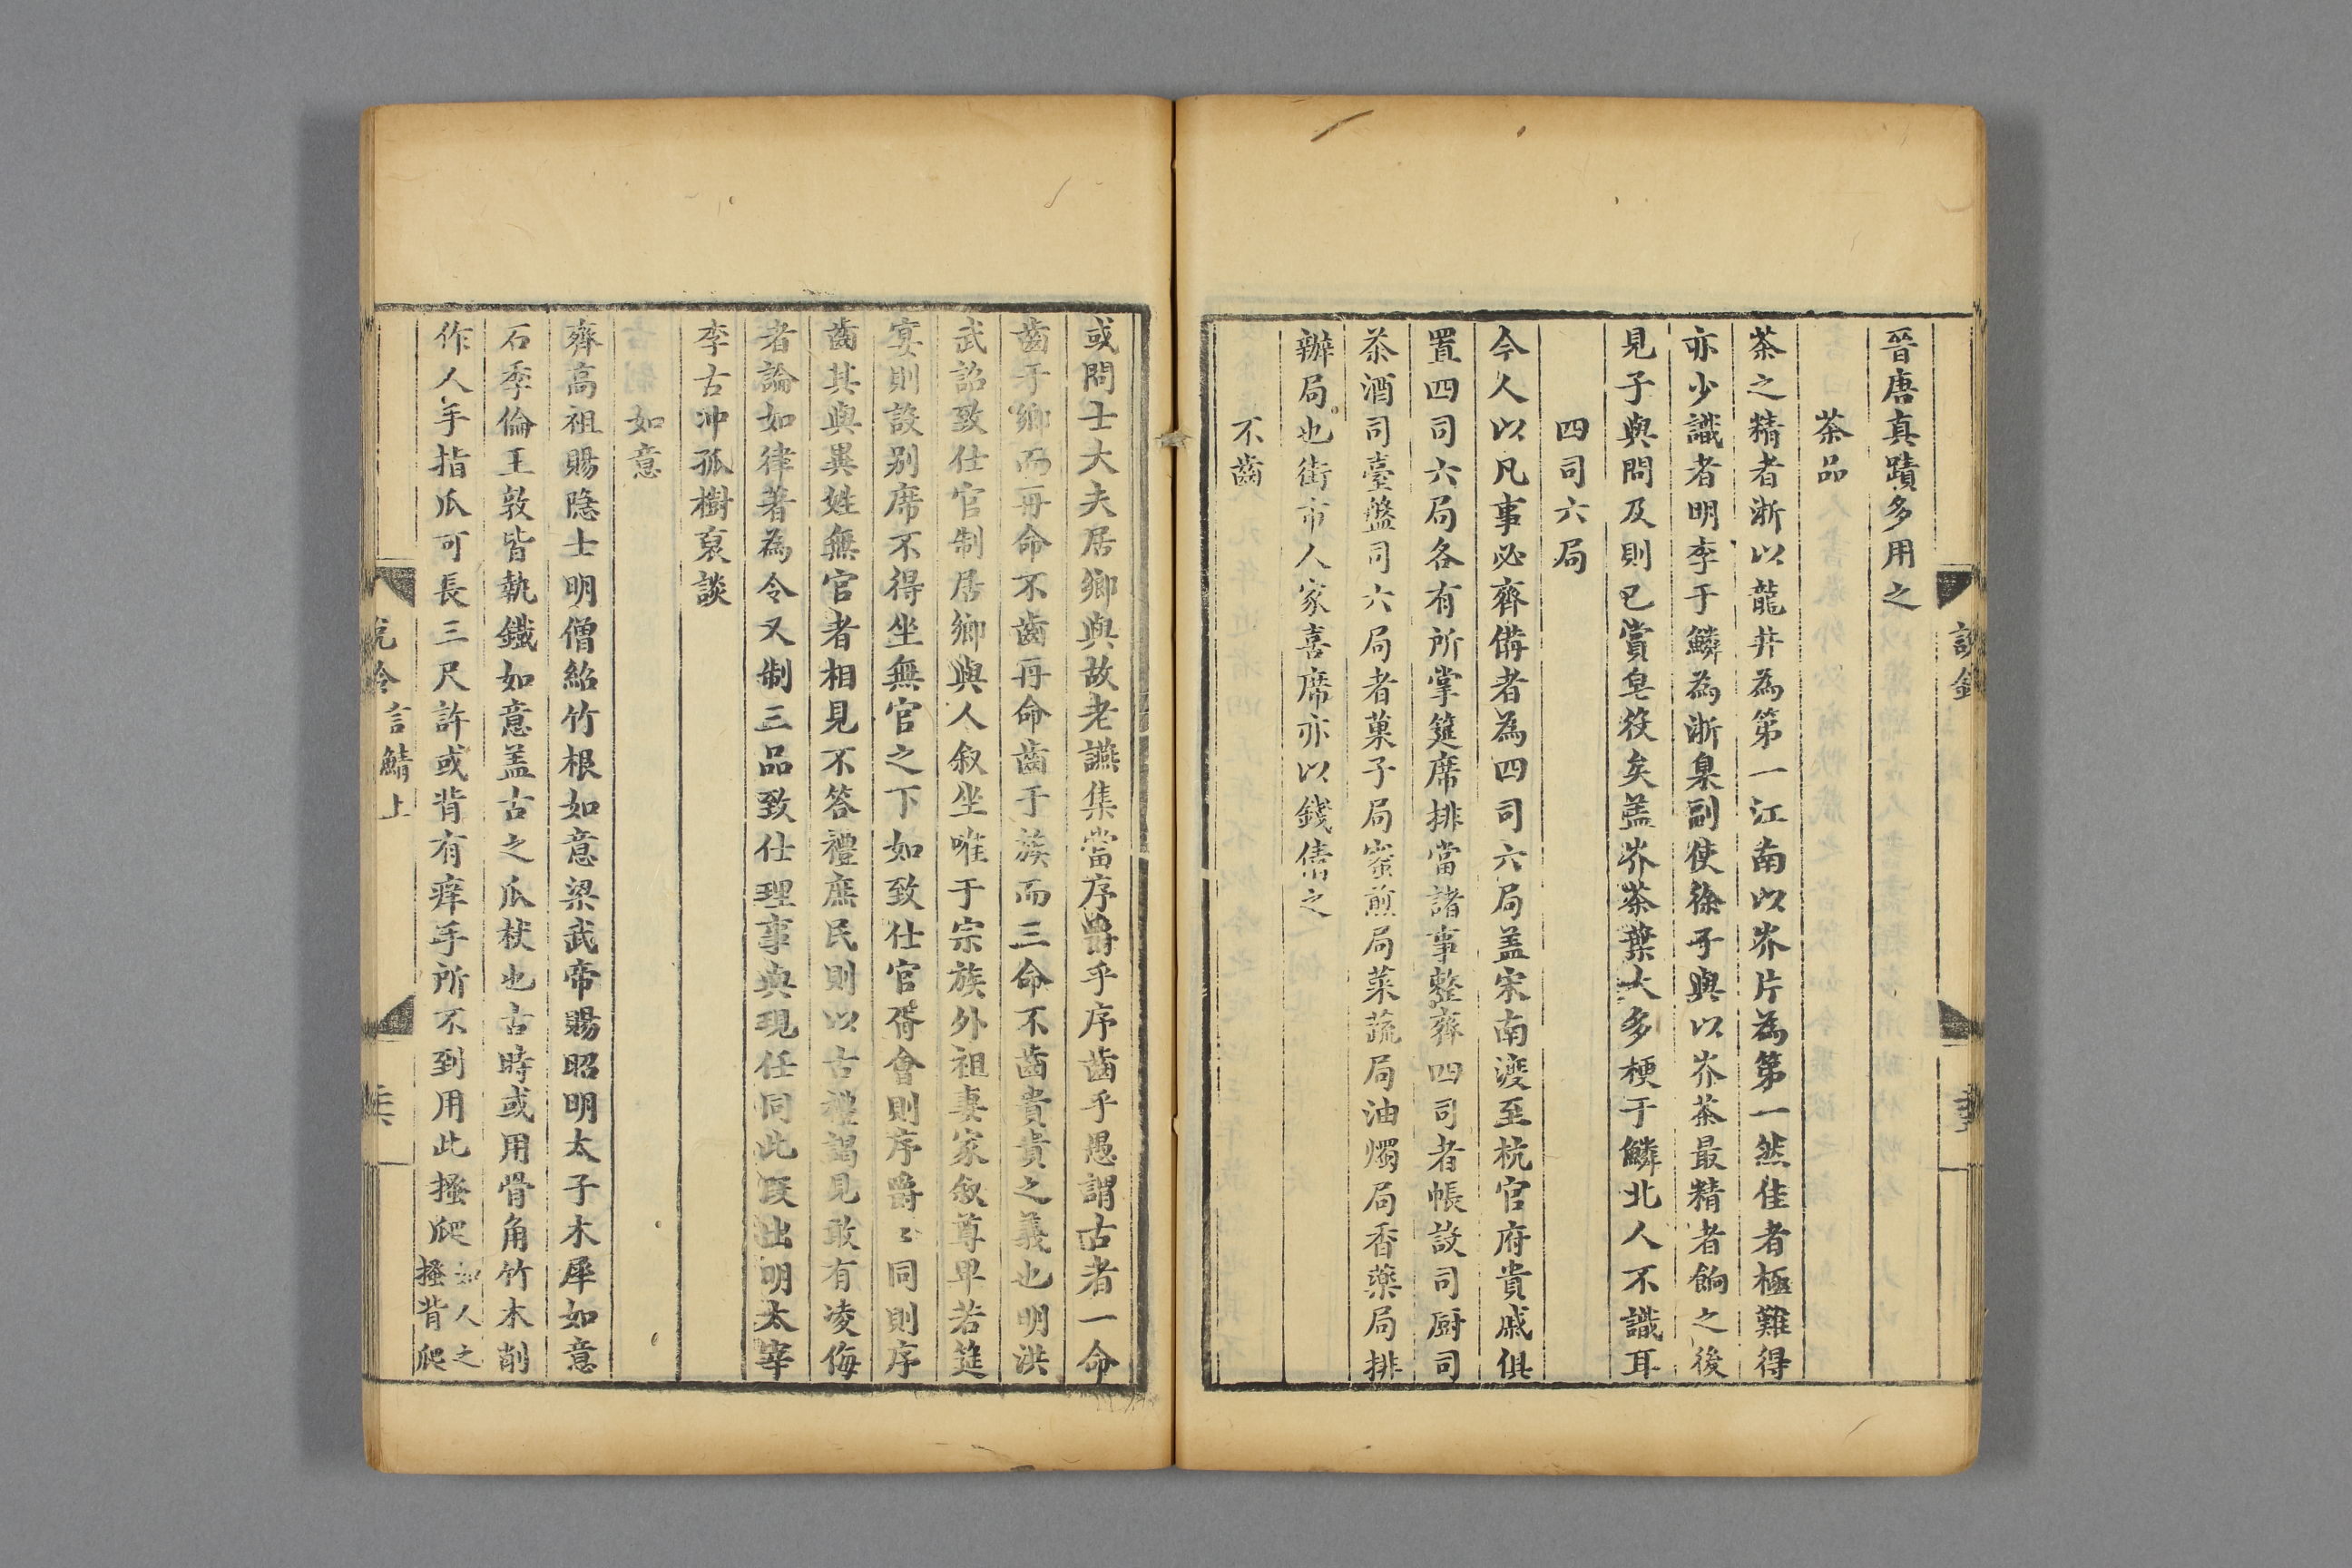 晉唐真蹟多用之
茶品
茶之精者浙以龍井為第一江南以岕片為第一然佳者極難得
亦少識者明李于鱗為浙臬副使徐子與以岕茶最精者餉之後
見子與問及則已賞皂役矣盖岕茶葉大多梗于鱗北人不識耳
四司六局
今人以凡事必齊備者為四司六局盖宋南渡至杭官府貴戚俱
置四司六局各有所掌筵席排當諸事整齊四司者帳設司厨司
茶酒司臺盤司六局者菓子局蜜煎局菜蔬局油燭局香藥局排
辦局也街市人家喜席亦以錢倩之
不齒
或問士大夫居鄉與故老讌集當序爵乎序齒乎愚謂古者一命
齒于鄉而再命不齒再命齒于族而三命不齒貴貴之義也明洪
武詔致仕官制居鄉與人叙坐唯于宗族外祖妻家叙尊卑若筵
宴則設别席不得坐無官之下如致仕官胥會則序爵〻同則序
齒其與異姓無官者相見不答禮庶民則以古禮謁見敢有凌侮
者論如律著為令又制三品致仕理事與現任同此段出明太宰
李古冲孤樹裒談
如意
齊高祖賜隱士明僧紹竹根如意梁武帝賜昭明太子木犀如意
石季倫王敦皆執鐵如意盖古之爪杖也古時或用骨角竹木削
作人手指爪可長三尺許或背有痒手所不到用此搔爬如人之
搔背爬
言鯖上